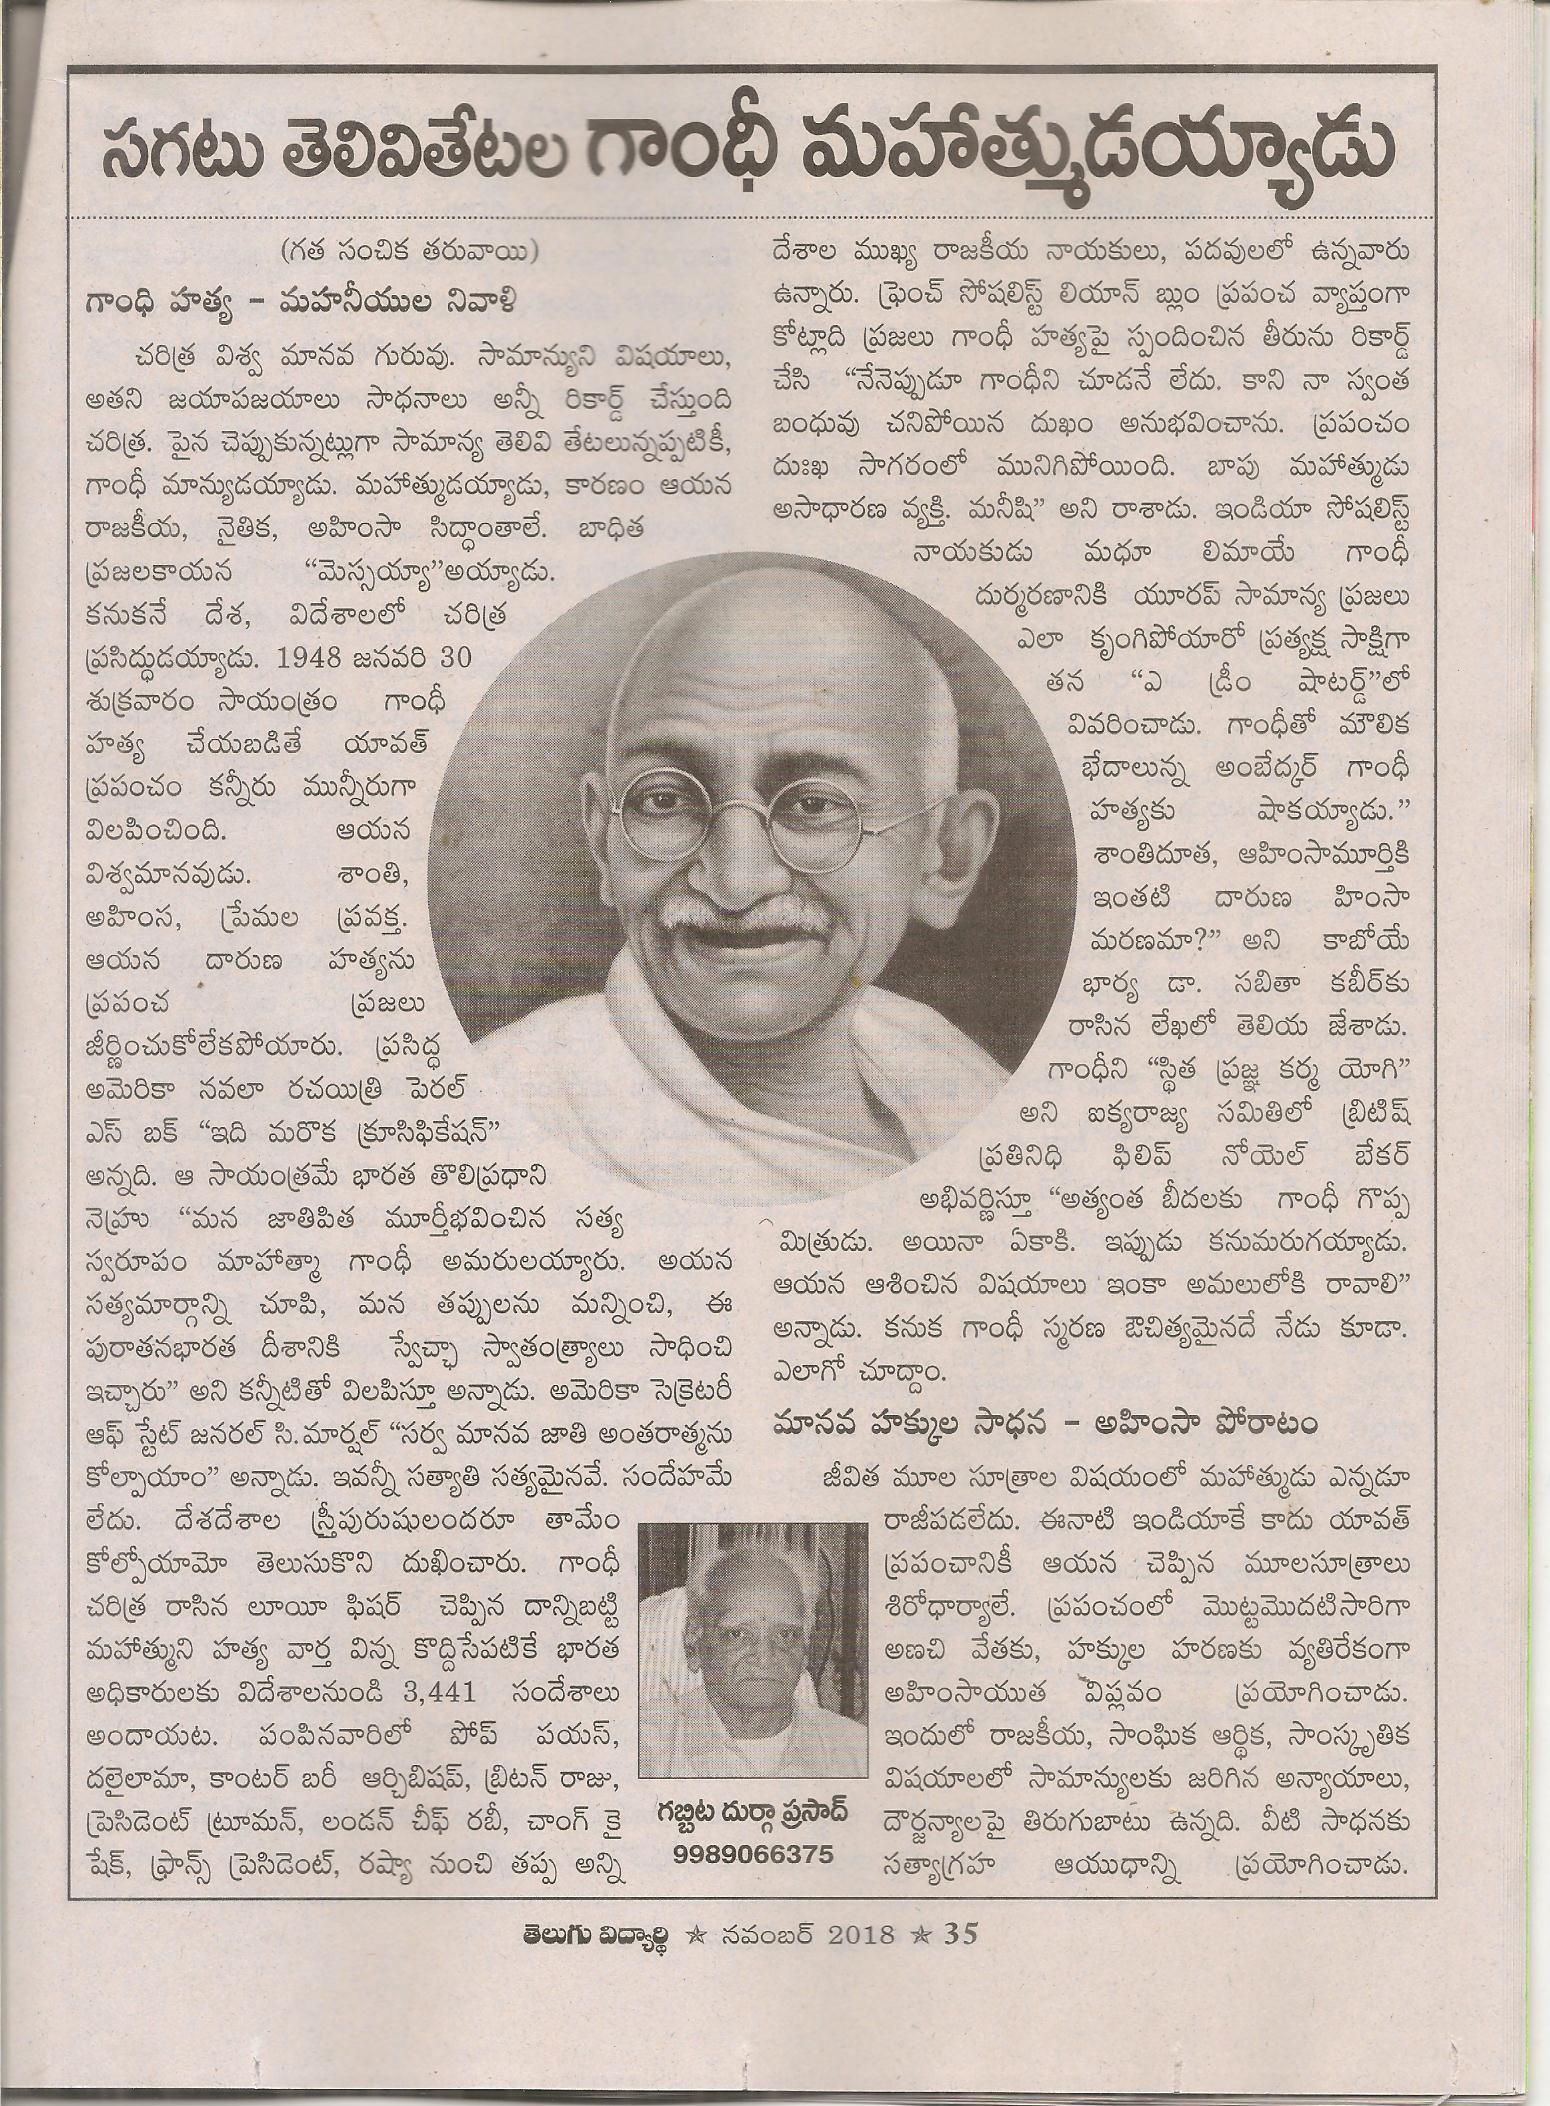 సగటు తెలివితేటల గాంధీ మహాత్ముడయ్యాడు
(గత సంచిక తరువాయి)
గాంధి హత్య – మహనీయుల నివాళి
చరిత్ర విశ్వ మానవ గురువు. సామాన్యుని విషయాలు,
అతని జయాపజయాలు సాధనాలు అన్నీ రికార్డ్ చేస్తుంది
చరిత్ర. పైన చెప్పుకున్నట్లుగా సామాన్య తెలివి తేటలున్నప్పటికీ,
గాంధీ మాన్యుడయ్యాడు. మహాత్ముడయ్యాడు, కారణం ఆయన
రాజకీయ, నైతిక, అహింసా సిద్ధాంతాలే. బాధిత
ప్రజలకాయన "మెస్సయ్యా"అయ్యాడు.
కనుకనే దేశ, విదేశాలలో చరిత్ర
ప్రసిద్ధుడయ్యాడు. 1948 జనవరి 30
శుక్రవారం సాయంత్రం గాంధీ
హత్య చేయబడితే యావత్
ప్రపంచం కన్నీరు మున్నీరుగా
విలపించింది. ఆయన
విశ్వమానవుడు. శాంతి,
అహింస, ప్రేమల ప్రవక్త.
ఆయన దారుణ హత్యను
ప్రపంచ ప్రజలు
జీర్ణించుకోలేకపోయారు. ప్రసిద్ధ
అమెరికా నవలా రచయిత్రి పెరల్
ఎస్ బక్ "ఇది మరొక క్రూసిఫికేషన్"
అన్నది. ఆ సాయంత్రమే భారత తొలిప్రధాని
నెహ్రు "మన జాతిపిత మూర్తీభవించిన సత్య
స్వరూపం మాహాత్మా గాంధీ అమరులయ్యారు. అయన
సత్యమార్గాన్ని చూపి, మన తప్పులను మన్నించి, ఈ
పురాతనభారత దీశానికి స్వేచ్ఛా స్వాతంత్ర్యాలు సాధించి
ఇచ్చారు" అని కన్నీటితో విలపిస్తూ అన్నాడు. అమెరికా సెక్రెటరీ
ఆఫ్ స్టేట్ జనరల్ సి.మార్షల్ "సర్వ మానవ జాతి అంతరాత్మను
కోల్పాయాం" అన్నాడు. ఇవన్నీ సత్యాతి సత్యమైనవే. సందేహమే
లేదు. దేశదేశాల స్త్రీపురుషులందరూ తామేం
కోల్పోయామో తెలుసుకొని దుఖించారు. గాంధీ
చరిత్ర రాసిన లూయీ ఫిషర్ చెప్పిన దాన్నిబట్టి
మహాత్ముని హత్య వార్త విన్న కొద్దిసేపటికే భారత
అధికారులకు విదేశాలనుండి 3,441 సందేశాలు
అందాయట. పంపినవారిలో పోప్ పయస్,
దలైలామా, కాంటర్ బరీ ఆర్చిబిషప్, బ్రిటన్ రాజు,
ప్రెసిడెంట్ ట్రూమన్, లండన్ చీఫ్ రబీ, చాంగ్ కై
షేక్, ఫ్రాన్స్ ప్రెసిడెంట్, రష్యా నుంచి తప్ప అన్ని
దేశాల ముఖ్య రాజకీయ నాయకులు, పదవులలో ఉన్నవారు
ఉన్నారు. ఫ్రెంచ్ సోషలిస్ట్ లియాన్ బ్లుం ప్రపంచ వ్యాప్తంగా
కోట్లాది ప్రజలు గాంధీ హత్యపై స్పందించిన తీరును రికార్డ్
చేసి "నేనెప్పుడూ గాంధీని చూడనే లేదు. కాని నా స్వంత
బంధువు చనిపోయిన దుఖం అనుభవించాను. ప్రపంచం
దుఃఖ సాగరంలో మునిగిపోయింది. బాపు మహాత్ముడు
అసాధారణ వ్యక్తి. మనీషి" అని రాశాడు. ఇండియా సోషలిస్ట్
నాయకుడు మధూ లిమాయే గాంధీ
దుర్మరణానికి యూరప్ సామాన్య ప్రజలు
ఎలా కృంగిపోయారో ప్రత్యక్ష సాక్షిగా
తన "ఎ డ్రీం షాటర్డ్"లో
వివరించాడు. గాంధీతో మౌలిక
భేదాలున్న అంబేద్కర్ గాంధీ
హత్యకు షాకయ్యాడు."
శాంతిదూత, ఆహింసామూర్తికి
ఇంతటి దారుణ హింసా
మరణమా?" అని కాబోయే
భార్య డా. సబితా కబీర్‌కు
రాసిన లేఖలో తెలియ జేశాడు.
గాంధీని "స్థిత ప్రజ్ఞ కర్మ యోగి"
అని ఐక్యరాజ్య సమితిలో బ్రిటిష్
ప్రతినిధి ఫిలిప్ నోయెల్ బేకర్
అభివర్ణిస్తూ "అత్యంత బీదలకు గాంధీ గొప్ప
మిత్రుడు. అయినా ఏకాకి. ఇప్పుడు కనుమరుగయ్యాడు.
ఆయన ఆశించిన విషయాలు ఇంకా అమలులోకి రావాలి"
అన్నాడు. కనుక గాంధీ స్మరణ ఔచిత్యమైనదే నేడు కూడా.
ఎలాగో చూద్దాం.
మానవ హక్కుల సాధన – అహింసా పోరాటం
జీవిత మూల సూత్రాల విషయంలో మహాత్ముడు ఎన్నడూ
రాజీపడలేదు. ఈనాటి ఇండియాకే కాదు యావత్
ప్రపంచానికీ ఆయన చెప్పిన మూలసూత్రాలు
శిరోధార్యాలే. ప్రపంచంలో మొట్టమొదటిసారిగా
అణచి వేతకు, హక్కుల హరణకు వ్యతిరేకంగా
అహింసాయుత విప్లవం ప్రయోగించాడు.
ఇందులో రాజకీయ, సాంఘిక ఆర్థిక, సాంస్కృతిక
విషయాలలో సామాన్యులకు జరిగిన అన్యాయాలు,
దౌర్జన్యాలపై తిరుగుబాటు ఉన్నది. వీటి సాధనకు
సత్యాగ్రహ ఆయుధాన్ని ప్రయోగించాడు.
గబ్బిట దుర్గా ప్రసాద్
9989066375
తెలుగు విద్యార్థి ☆ నవంబర్ 2018 ☆ 35